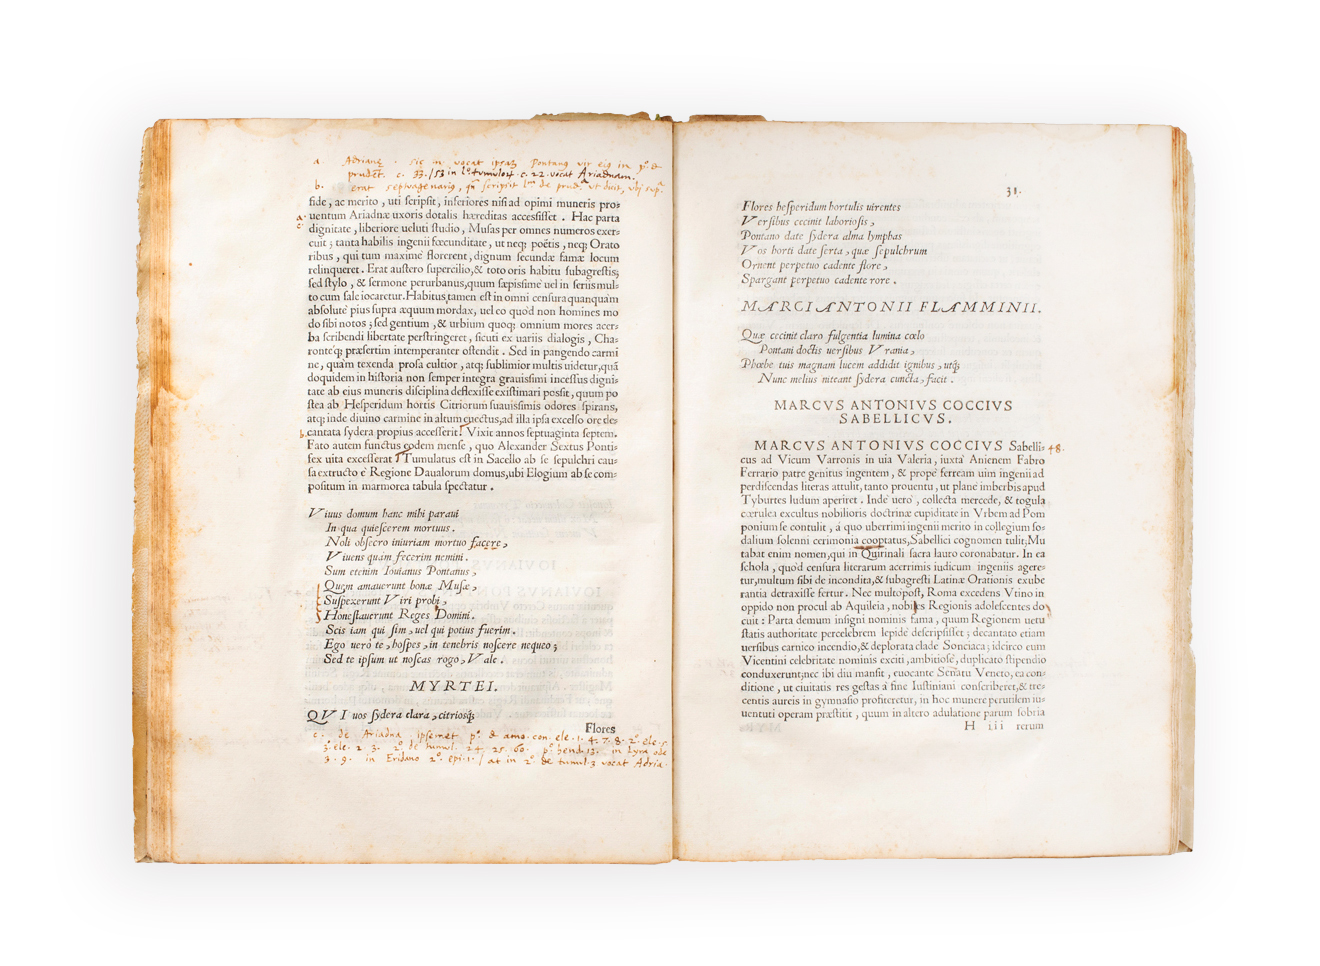 a. Adrianę. sic n. vocat ipsaȝ Pontanꝰ vir eiꝰ in p.º &
prudēt. c. 33. / 53 in l.º tumuloꝝ. c. 22. vocat Ariadnam.
b. erat septuagenariꝰ, scripsit de vt dixit, vbi supª.
fide, ac merito, uti ſcripſit, inferiores niſi ad opimi muneris pro⸗
a. uentum Ariadnæ uxoris dotalis hæreditas acceſsiſſet. Hac parta
c. dignitate, liberiore ueluti ſtudio, Muſas per omnes numeros exer⸗
cuit; tanta habilis ingenii fœcunditate, ut neq; poëtis, neq; Orato
ribus, qui tum maxime florerent, dignum ſecundæ famæ locum
relinqueret. Erat auſtero ſupercilio, & toto oris habitu ſubagreſtis;
ſed ſtylo, & ſermone perurbanus, quum ſæpiſsime uel in ſeriis mul⸗
to cum ſale iocaretur. Habitus tamen eſt in omni cenſura quanquàm
abſolute pius ſupra æquum mordax, uel eo quòd non homines mo
do ſibi notos; ſed gentium, & urbium quoq; omnium mores acer⸗
ba ſcribendi libertate perſtringeret, ſicuti ex uariis dialogis, Cha⸗
ronteq; præſertim intemperanter oſtendit. Sed in pangendo carmi
ne, quam texenda proſa cultior, atq; ſublimior multis uidetur, quā
doquidem in hiſtoria non ſemper integra grauiſsimi inceſſus digni⸗
tate ab eius muneris diſciplina deflexiſſe exiſtimari poſsit, quum po
ſtea ab Heſperidum hortis Citriorum ſuauiſsimis odores ſpirans,
atq; inde diuino carmine in altum euectus, ad illa ipſa excelſo ore de⸗
b. cantata ſydera propius acceſſerit. Vixit annos ſeptuaginta ſeptem.
Fato autem functus eodem menſe, quo Alexander Sextus Ponti⸗
fex uita exceſſerat. Tumulatus eſt in Sacello ab ſe ſepulchri cau⸗
ſa extructo è Regione Daualorum domus, ubi Elogium ab ſe com⸗
poſitum in marmorea tabula ſpectatur.
Viuus domum hanc mihi paraui
In qua quieſcerem mortuus.
Noli obſecro iniuriam mortuo facere,
Viuens quam fecerim nemini.
Sum etenim Iouianus Pontanus,
Quem amauerunt bonæ Muſæ,
Suſpexerunt Viri probi,
Honeſtauerunt Reges Domini.
Scis iam qui ſim, uel qui potius fuerim.
Ego uerò te, hoſpes, in tenebris noſcere nequeo;
Sed te ipſum ut noſcas rogo, Vale.
MYRTEI.
QVI uos ſydera clara, citrioſq;
Flores
c. de Ariadna ipsemet p.º & amo. con. ele. 1. 4. 7. 8. 2º. ele. 5.
3. ele. 2. 3. 2º. de tumul. 24. 25. 60. pº. hend. 13. in Lyra ode
3. 9. in Eridano 2º. epi. 1. / at in 2º. de tumul. 3 vocat Adria.
31.
Flores heſperidum hortulis uirentes
Verſibus cecinit laborioſis,
Pontano date ſydera alma lymphas
Vos horti date ſerta, quæ ſepulchrum
Ornent perpetuo cadente flore,
Spargant perpetuo cadente rore.
MARCI ANTONII FLAMMINII.
Quæ cecinit claro fulgentia lumina cœlo
Pontani doctis uerſibus Vrania,
Phœbe tuis magnam lucem addidit ignibus, utq;
Nunc melius niteant ſydera cuncta, facit.
MARCVS ANTONIVS COCCIVS
SABELLICVS.
MARCVS ANTONIVS COCCIVS Sabelli⸗ 48.
cus ad Vicum Varronis in uia Valeria, iuxta Anienem Fabro
Ferrario patre genitus ingentem, & propè ferream uim ingenii ad
perdiſcendas literas attulit, tanto prouentu, ut planè imberbis apud
Tyburtes ludum aperiret. Inde uerò, collecta mercede, & togula
cœrulea excultus nobilioris doctrinæ cupiditate in Vrbem ad Pom
ponium ſe contulit, à quo uberrimi ingenii merito in collegium ſo⸗
dalium ſolenni cerimonia cooptatus, Sabellici cognomen tulit; Mu
tabat enim nomen, qui in Quirinali ſacra lauro coronabatur. In ea
ſchola, quòd cenſura literarum acerrimis iudicum ingeniis agere⸗
tur, multum ſibi de incondita, & ſubagreſti Latinæ Orationis exube
rantia detraxiſſe fertur. Nec multopoſt, Roma excedens Vtino in
oppido non procul ab Aquileia, nobiles Regionis adoleſcentes do
cuit: Parta demum inſigni nominis fama, quum Regionem uetu
ſtatis authoritate percelebrem lepidè deſcripſiſſet; decantato etiam
uerſibus carnico incendio, & deplorata clade Sonciaca; idcirco eum
Vicentini celebritate nominis exciti, ambitioſè, duplicato ſtipendio
conduxerunt; nec ibi diu manſit, euocante Senatu Veneto, ea con⸗
ditione, ut ciuitatis res geſtas à fine Iuſtiniani conſcriberet, & tre⸗
centis aureis in gymnaſio profiteretur, in hoc munere perutilem iu⸗
uentuti operam præſtitit, quum in altero adulatione parum ſobria
H iii rerum